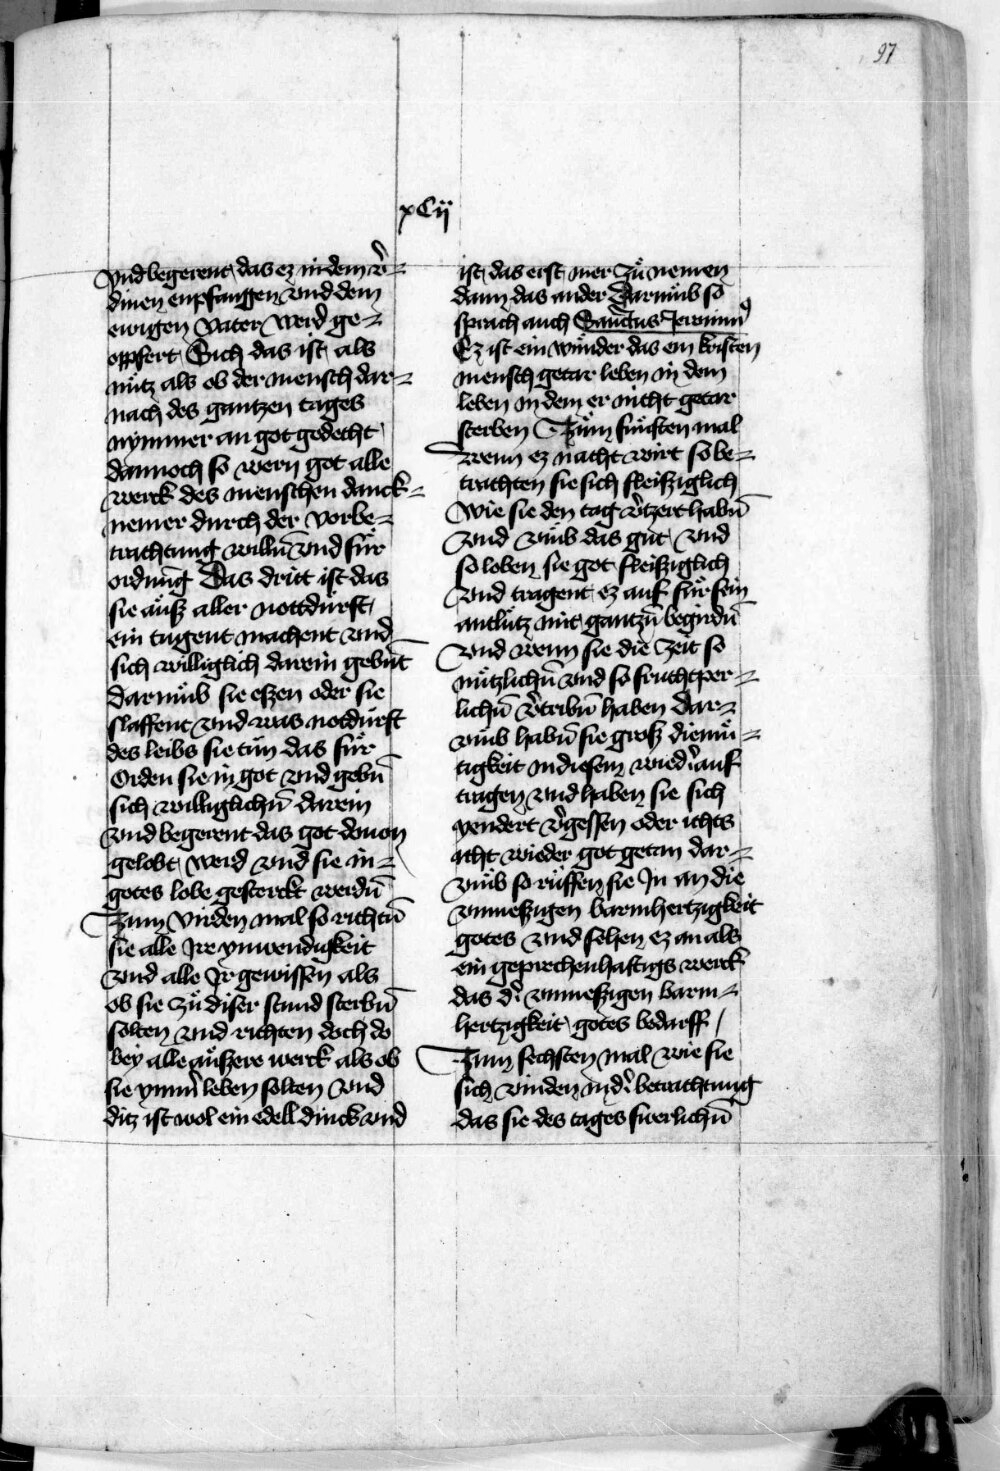 97
xCij
vnd begerent das ez in dem v̄-
dinen enpfangen vnd dem
ewigen vater werd ge-
opfert Sich das ist als
nütz als ob der mensch dar-
nach des gantzen tages
nymmer an got gedecht
dannoch so wern got alle
werck des menschen danck-
nemer durch der vorbe-
trachtung willn̄ vnd für
ordnūg Das dritt ist das
sie aüsz aller nottdürft
ein tugent machent vnd
sich williglich darein gebn̄t
darumb sie eszen oder sie
slaffent vnd was notdürft
des leibs sie tün das für
Orden sie in got vnd gebn̄
sich williglichn̄ darein
vnd begerent das got dauon
gelobt werd vnd sie in
gotes lobe gesterckt werdn̄
Zum virden mal so richtn̄
sie alle Ire ynwendigkeit
vnd alle Ir gewissen als
ob sie zü diser stund sterbn̄
solten vnd richten doch do
bey alle aüszere werck als ob
sie ymm̄ leben solten vnd
ditz ist wol ein edell dinck vnd
ist das erst mer zü nemen
dann das ander Darumb so
sprach auch Sanctus Jeronimꝰ
Ez ist ein wünder das ein kristen
mensch getar leben in dem
leben in dem er nicht getar
sterben Züm fünften mal
wenn ez nacht wirt so be-
trachten sie sich fleisziglich
wie sie den tag v̄tzert habn̄
vnd vmb das güt vnd
so loben sie got fleisziglich
vnd tragent ez auf für sein
antlütz mit gantzn̄ begirdn̄
vnd wenn sie die zeit so
nützlichn̄ vnd so fruchtper-
lichn̄ v̄tribn̄ haben dar-
vmb habn̄ sie grosz diemü-
tigkeit in diesem wied̄ auf
tragen vnd haben sie sich
yendert v̄gessen oder ichts
icht wieder got getan dar-
vmb so rüffen sie In an die
vnmeszigen barmhertzigkeit
gotes vnd sehen ez an als
ein geprechenhaftigs werck
das d̄ vnmeszigen barm-
hertzigkeit gotes bedarff
Zum sechsten mal wie sie
sich vinden in d̄ betrachtung
das sie des tages swerlichn̄